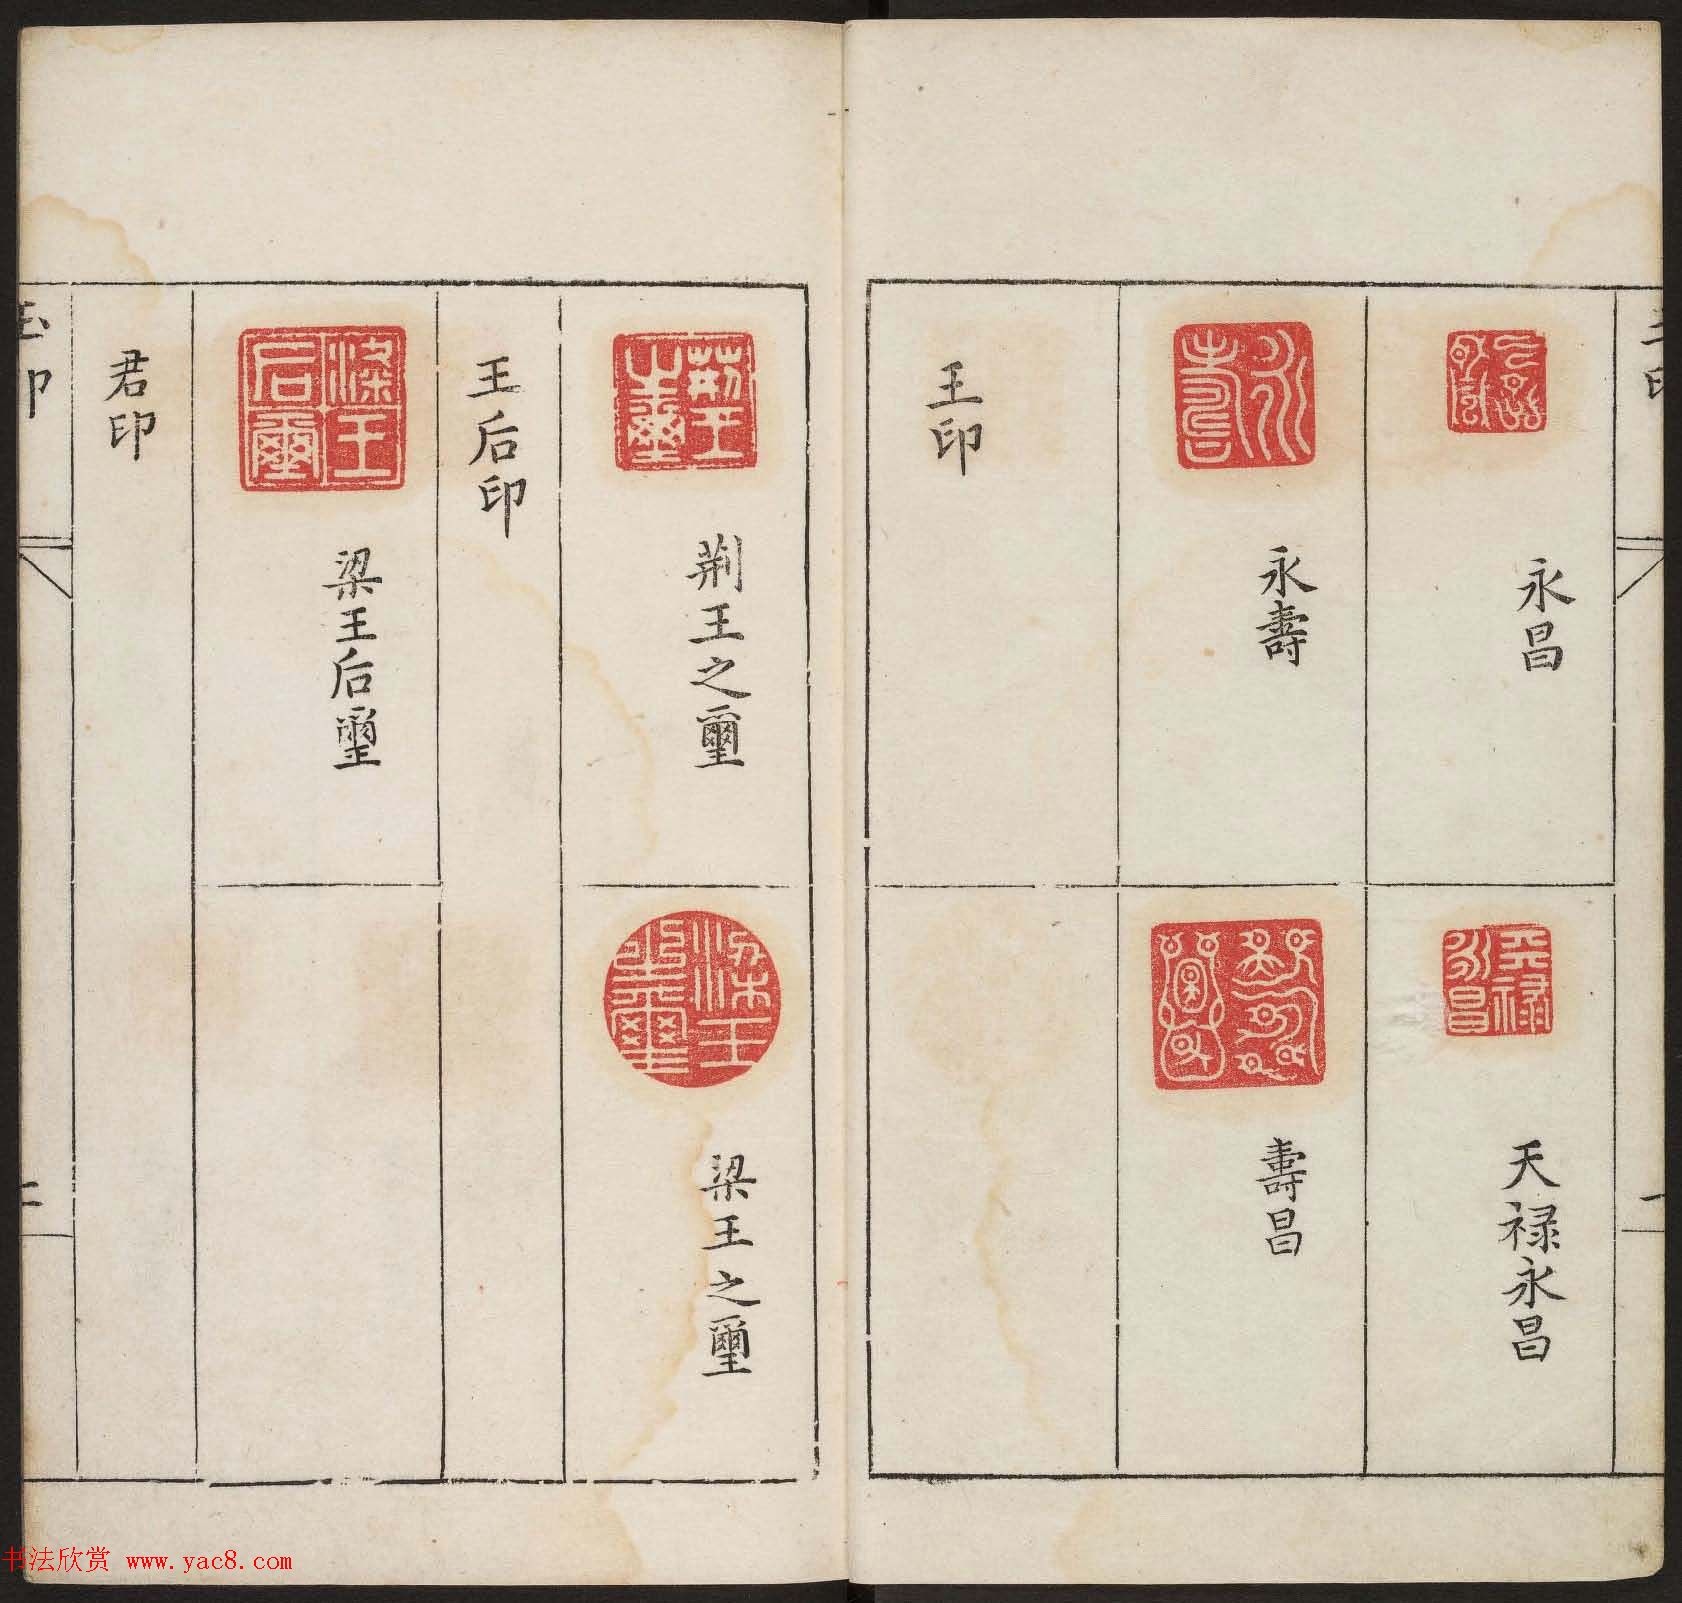 玉印
永昌
天禄永昌
永壽
壽昌
王印
荆王之璽
梁王之璽
王后印
梁王后璽
君印
玉印
二
书法欣赏 www.yac8.com